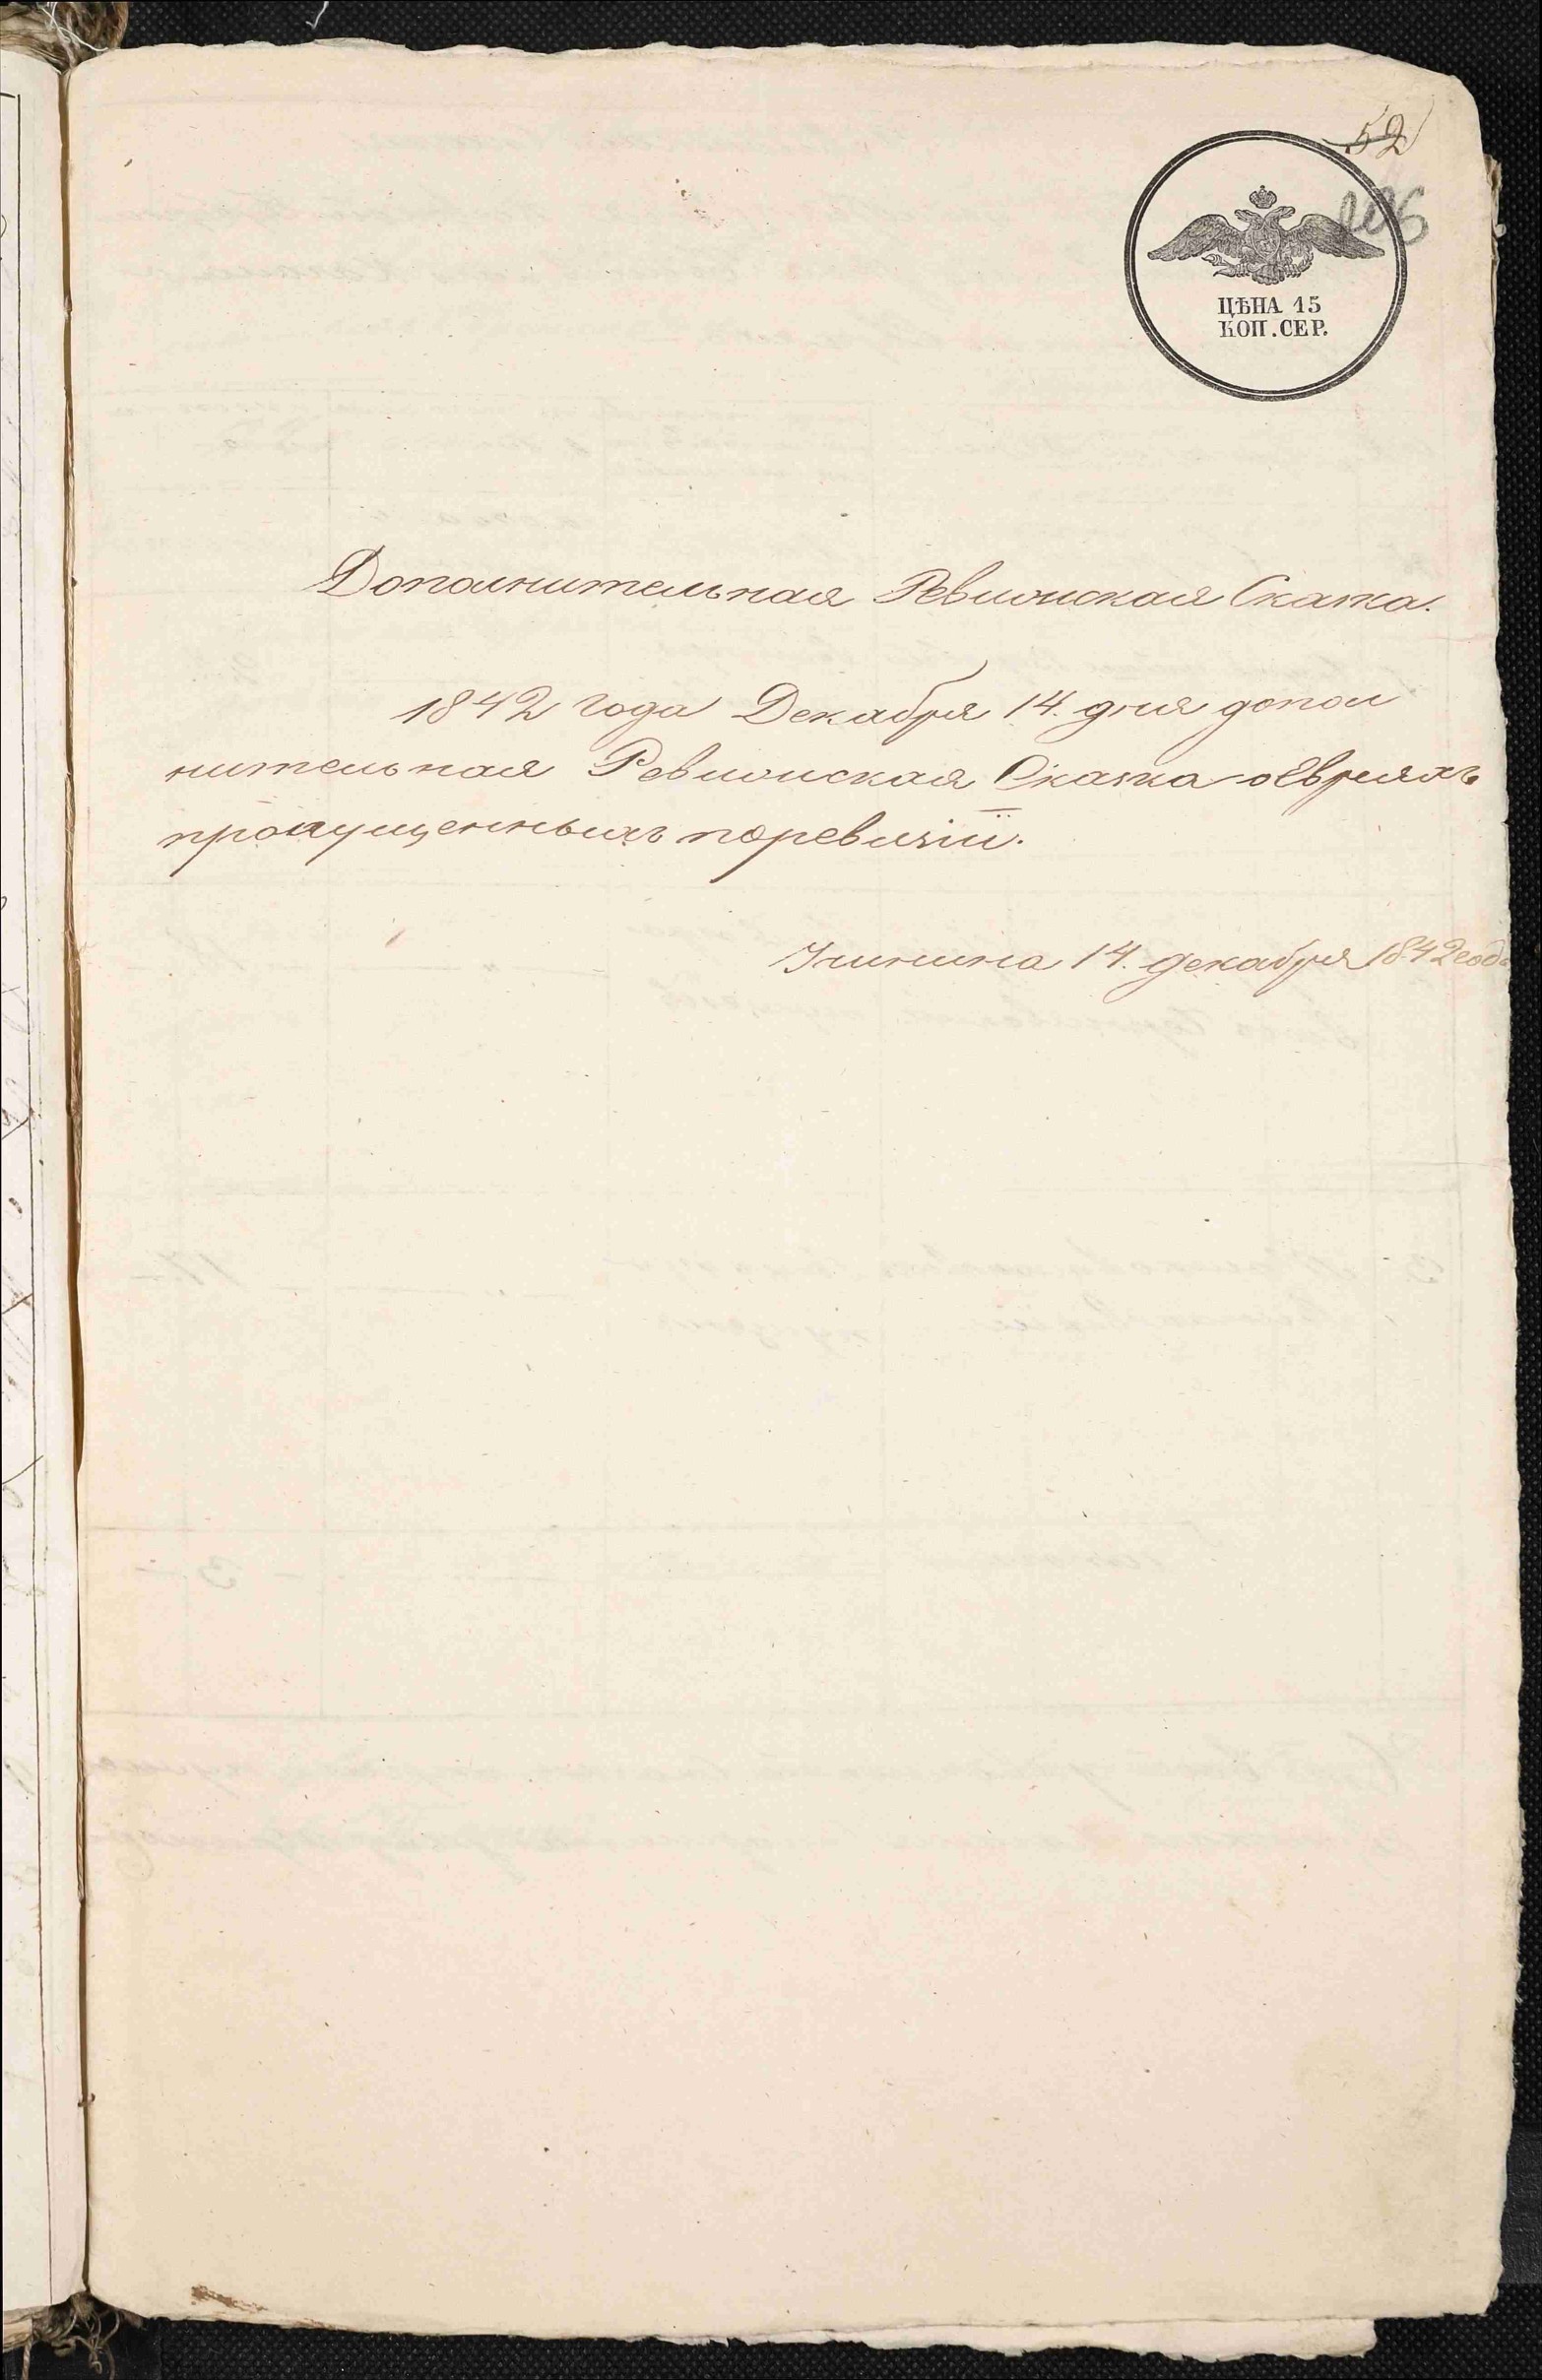 52
ЦѢНА 15
КОП. СЕР.
Дополнительная Ревизская Сказка.
1842 года Декабря 14. дня допол
нительная Ревизская Сказка оЕвреяхъ
пропущенныхъ поревизіи.
14. декабря 1842 года